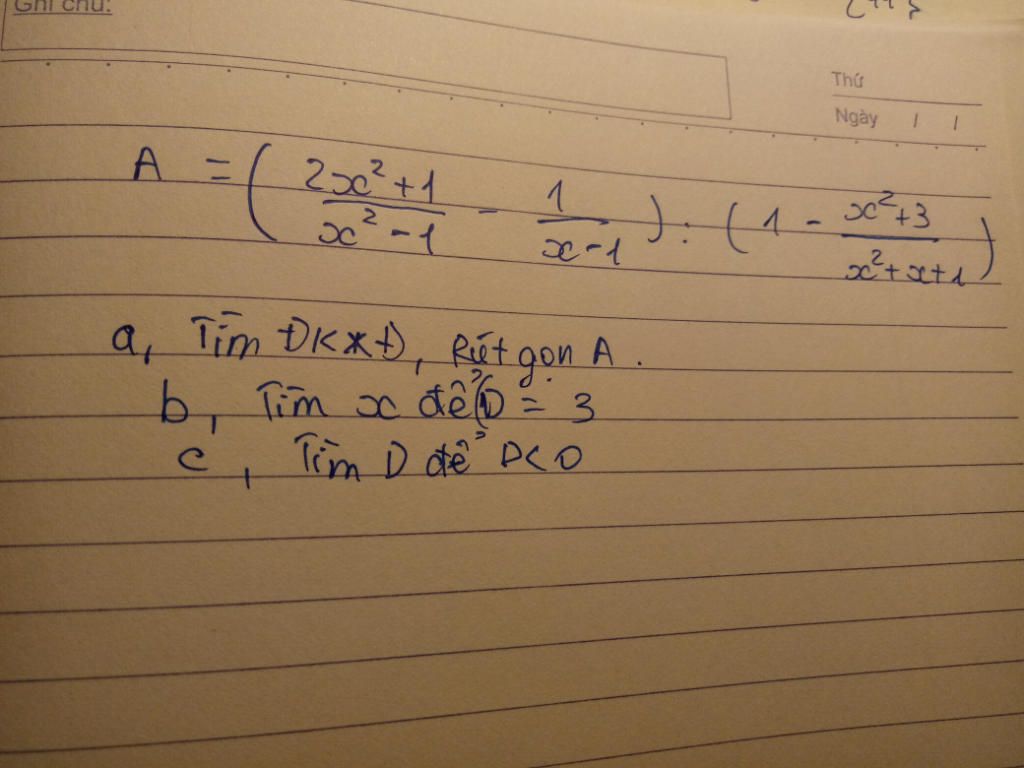 Ghi chú:
Thứ
Ngày / /
A = ( \frac{2x^2+1}{x^2-1} - \frac{1}{x-1} ) : ( 1 - \frac{x^2+3}{x^2+x+1} )
a, Tìm ĐKXĐ, Rút gọn A.
b, Tìm x để D = 3
c, Tìm D để D<0